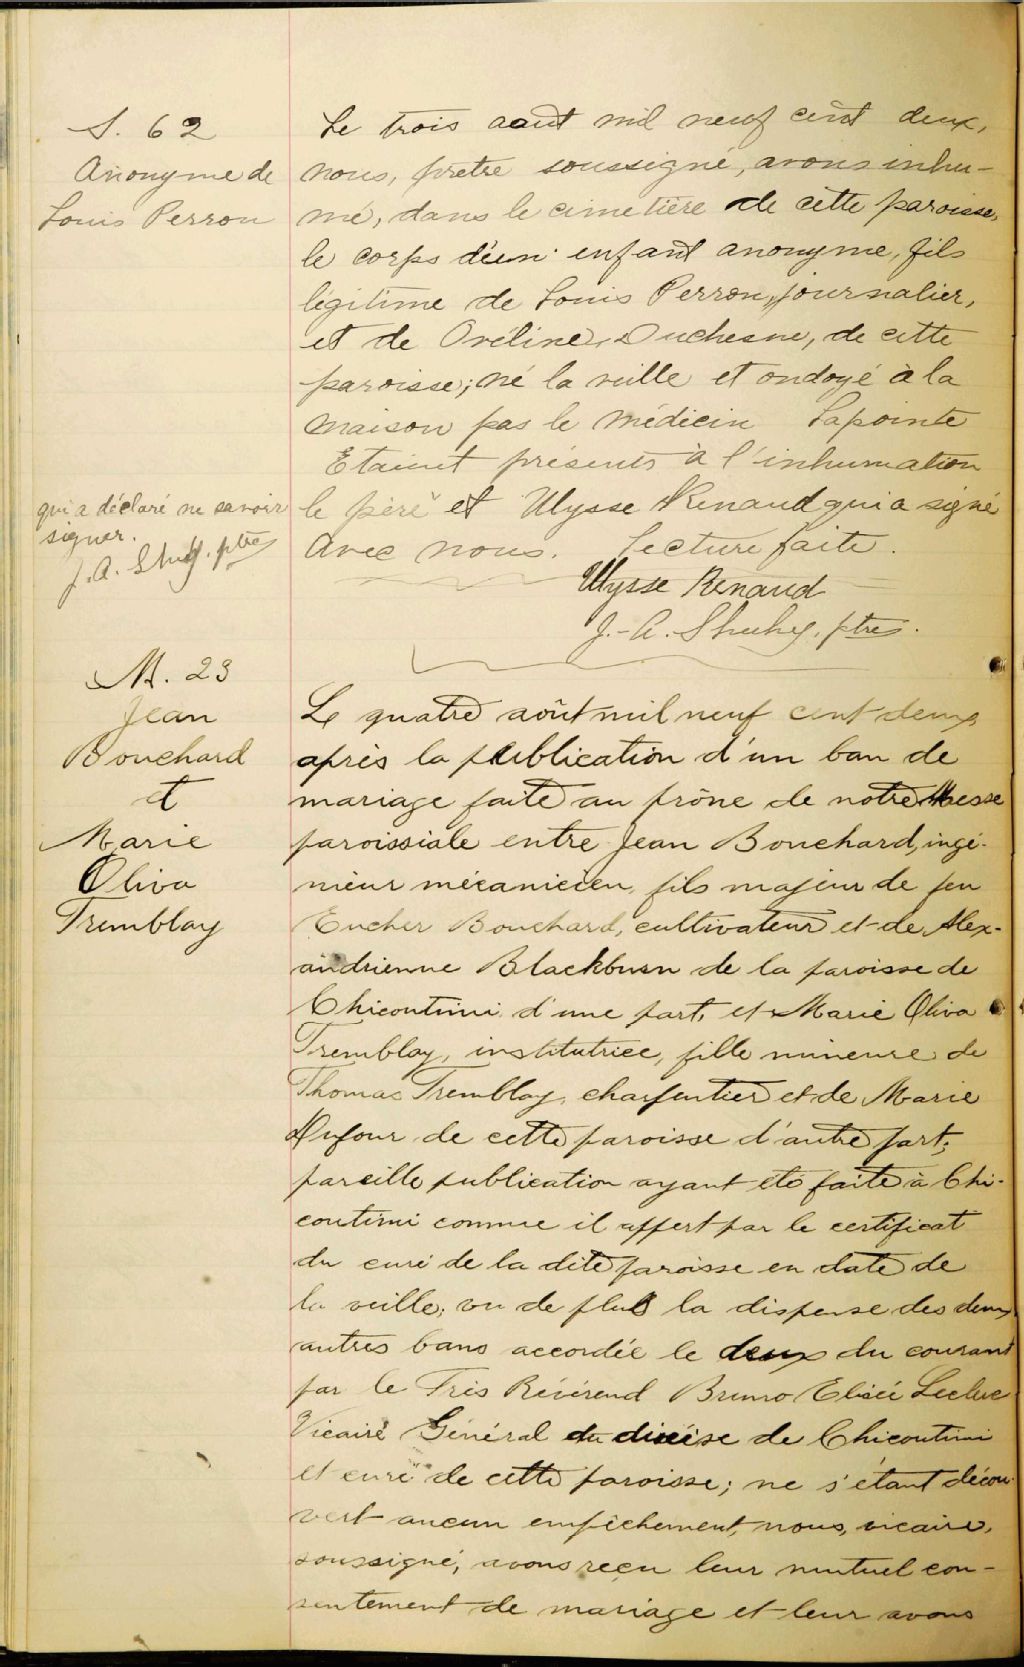 S. 62
Anonyme de
Louis Perron
Le trois août mil neuf cent deux,
nous, prêtre soussigné, avons inhu-
mé, dans le cimetière de cette paroisse,
le corps d'un enfant anonyme, fils
légitime de Louis Perron, journalier,
et de Oréline Duchesne, de cette
paroisse; né la veille et ondoyé à la
maison pas le médecin Lapointe
Etaient présents à l'inhumation
le père et Ulysse Renaud qui a signé
avec nous. Lecture faite.
qui a déclaré ne savoir
signer.
J. A. Shuhy. ptre
Ulysse Renaud
J.-A. Shuhy, ptre.
M. 23
Jean
Bouchard
et
Marie
Oliva
Tremblay
Le quatre août mil neuf cent deux,
après la publication d'un ban de
mariage faite au prône de notre Messe
paroissiale entre Jean Bouchard, ingé-
nieur mécanicien, fils majeur de feu
Eucher Bouchard, cultivateur et de Alex-
andrienne Blackburn de la paroisse de
Chicoutimi d'une part, et Marie Oliva
Tremblay, institutrice, fille mineure de
Thomas Tremblay, charpentier et de Marie
Dufour de cette paroisse d'autre part;
pareille publication ayant été faite à Chi-
coutimi comme il appert par le certificat
du curé de la dite paroisse en date de
la veille; vu de plus la dispense des deux
autres bans accordée le deux du courant
par le Très Révérend Bruno Elisée Leclerc
Vicaire Général du diocèse de Chicoutimi
et curé de cette paroisse; ne s'étant décou-
vert aucun empêchement, nous, vicaire,
soussigné, avons reçu leur mutuel con-
sentement de mariage et leur avons